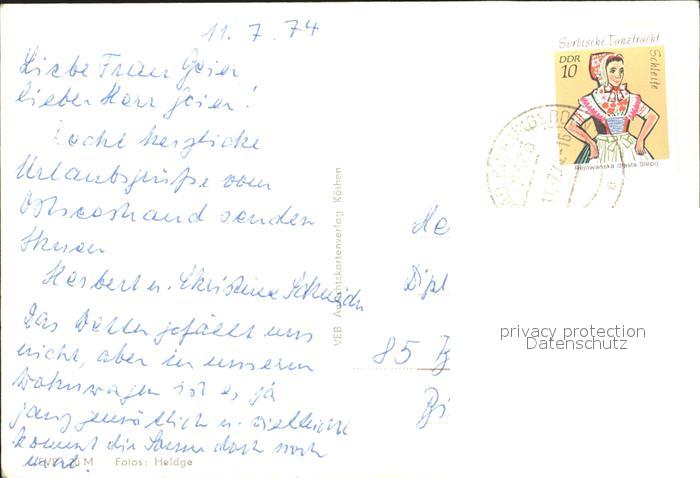 11. 7. 74
Liebe Frau Geier
lieber Herr Geier!
Recht herzliche
Urlaubsgrüße vom
Ostseestrand senden
Ihnen
Herbert u. Christine Schneider
Das Wetter gefällt uns
nicht, aber in unserem
Wohnwagen ist es ja
ganz gemütlich u. vielleicht
kommt die Sonne doch noch
mal.
20 M Fotos: Heldge
VEB Ansichtskartenverlag Köthen
Sorbische Tanztracht
Schleife
DDR
10
Rejowanska drasta Slepo
He
Dipl
85 B
Bi
privacy protection
Datenschutz